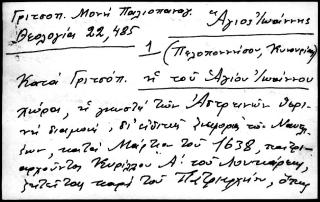 Γριτσόπ. Μονή Παλιοπαναγ. Ἅγιος Ἰωάννης
Θεολογία 22, 485
1 (Πελοποννήσου, Κυνουρία)
Κατά Γριτσόπ. ἡ τοῦ Ἁγίου Ἰωάννου
ἡ γνωστή τῶν Ἀστρεινῶν θερι-
νή διαμονή, δι' εἰδικῆς ἀναφορᾶς τῶν
κατά Μάρτιον τοῦ 1638, πατρι-
αρχοῦντος Κυρίλλου Α´ τοῦ Λουκάρεως,
παρά τοῦ Πατριάρχου, ὅπως